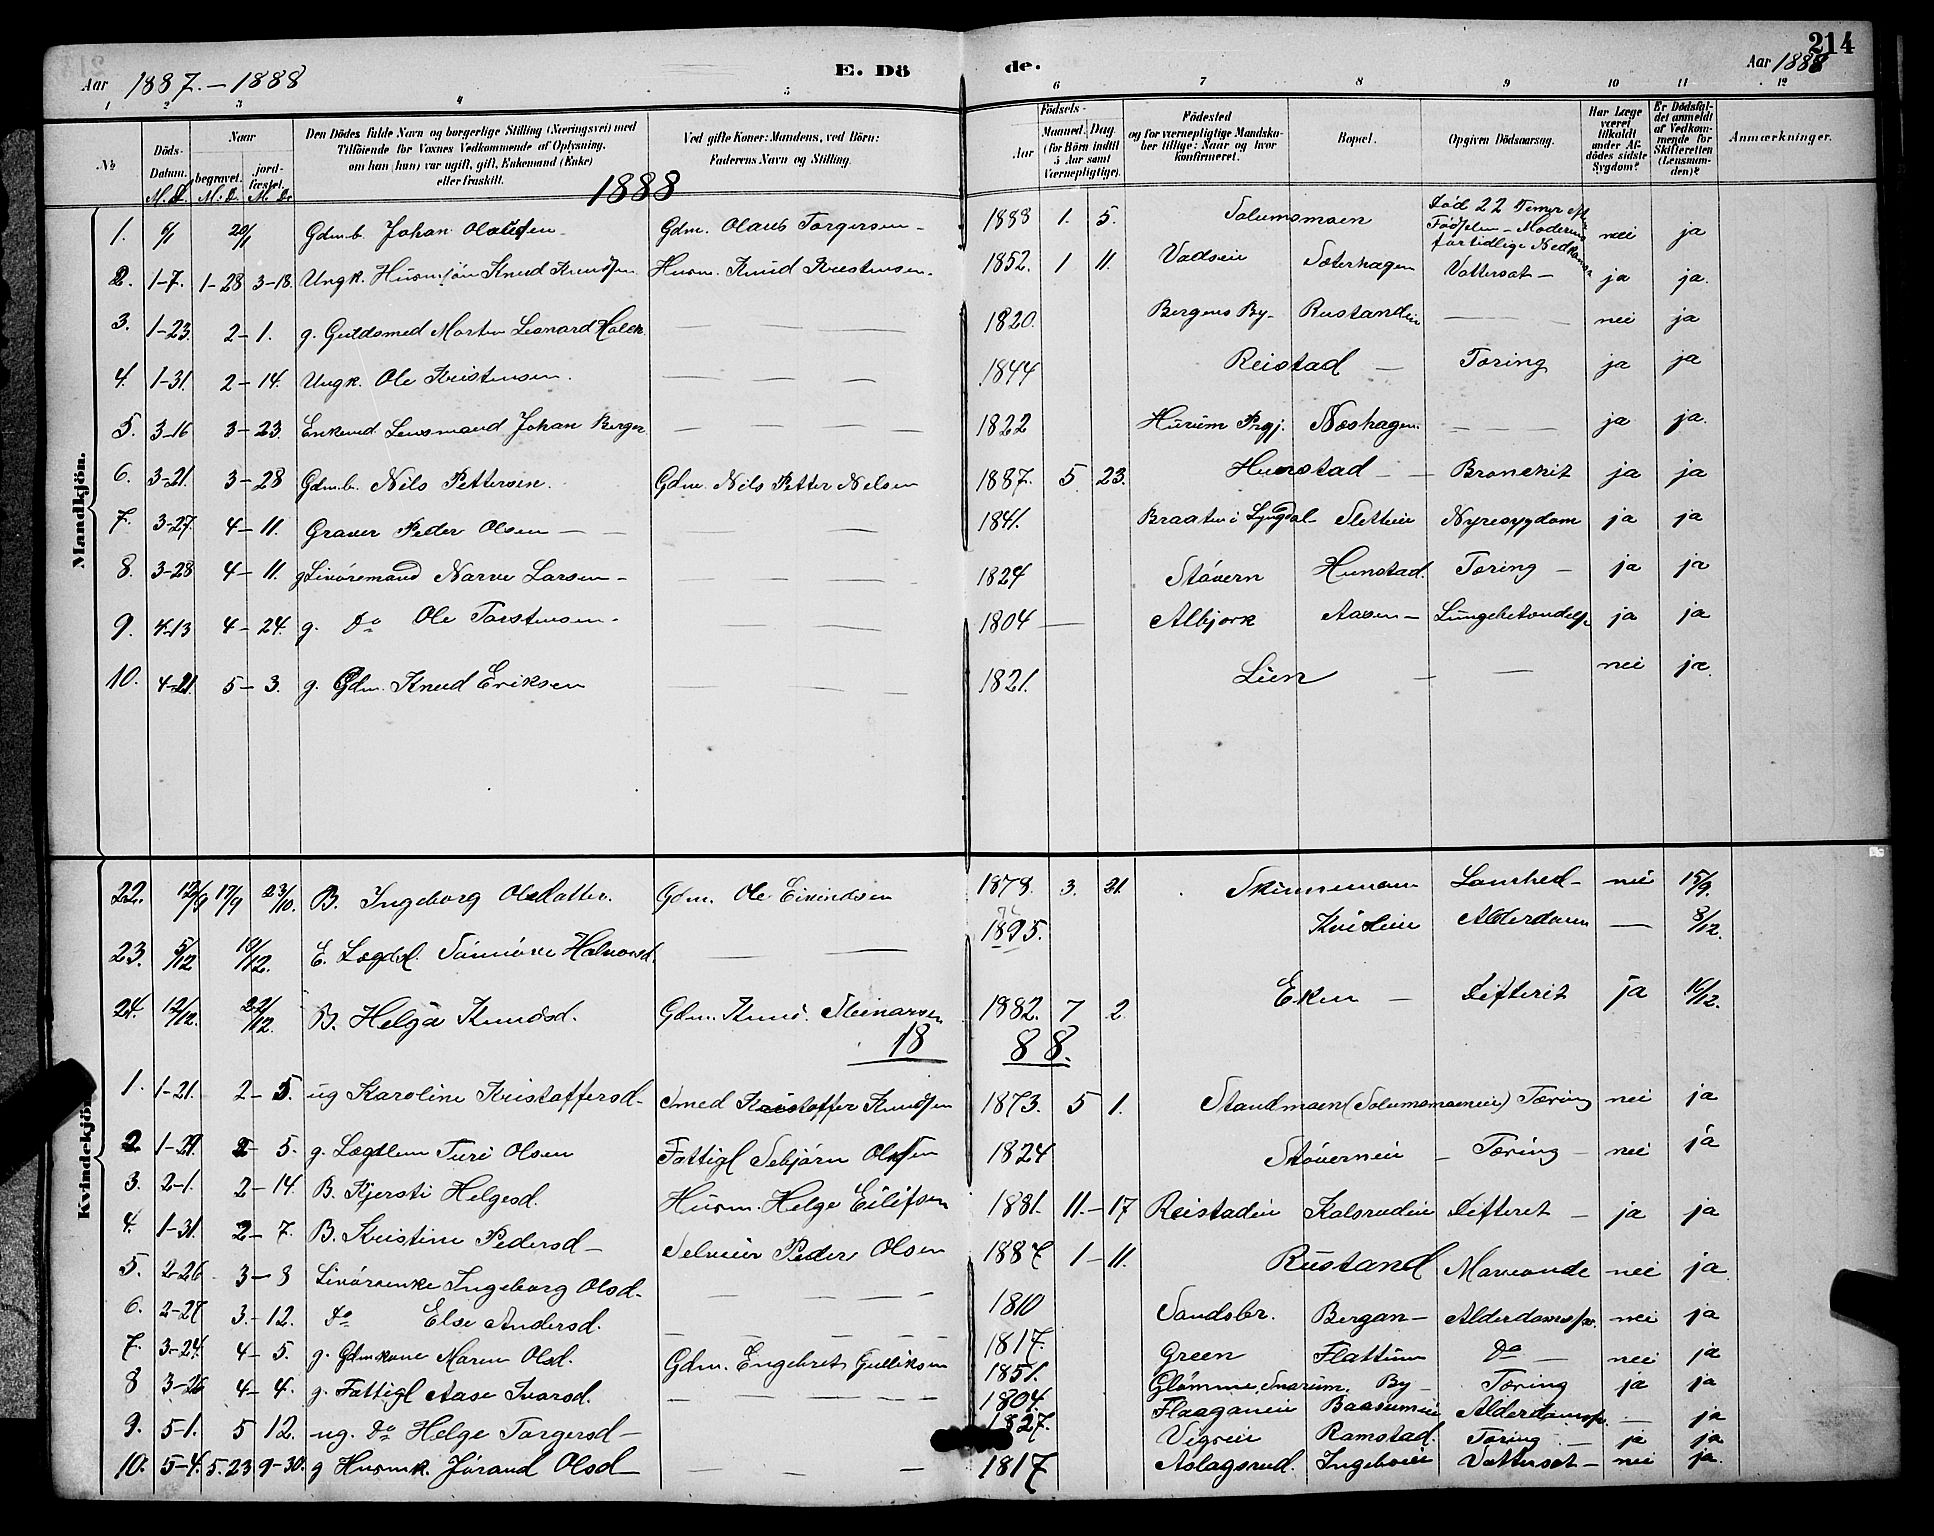 214
Aar 1887.-1888 E. Dö de. Aar 1888
1 2 3 4 5 6 7 8 9 10 11 12
№ Döds-Datum. M. D. Naar begravet. M. D. jord-fæstet. M. D. Den Dödes fulde Navn og borgerlige Stilling (Næringsvei) med Tilföiende for Voxnes Vedkommende af Oplysning, om han (hun) var ugift, gift, Enkemand (Enke) eller fraskilt. Ved gifte Koner: Mandens, ved Börn: Faderens Navn og Stilling. Födsels- Aar Maaned. Dag. (for Börn indtil 5 Aar samt Værnepligtige). Födested og for værnepligtige Mandskaber tillige: Naar og hvor konfirmeret. Bopæl. Opgiven Dödsaarsag. Har Læge været tilkaldt under Afdödes sidste Sygdom? Er Dödsfaldet anmeldt af Vedkommende for Skifteretten (Lensmanden)? Anmærkninger.
1888
Mandkjön.
1. 6/1 20/1 Gdmb. Johan Olausen Gdm. Olaus Torgersen 1888 1. 5. Solumsmoen Död 22 Timer eft. Födselen - Moderens for tidlige Nedkomst nei ja
2. 1-7. 1-28 3-18. Ungk. Husmsön Knud Knudsen Husm. Knud Kristensen. 1852. 1 11. Vadseie Sæterhagen Vattersot - ja ja.
3. 1-23. 2-1. g. Guldsmed Morten Leonard Holck — — — 1820. Bergens By- Rustandeie — — nei ja
4. 1-31. 2-14. Ungk. Ole Kristensen. — — — 1844 Reistad — Tæring ja ja
5. 3-16 3-23. Enkemd. Lensmand Johan Berger — — — 1822 Hurum Prgj. Næshagen. — — — ja ja.
6. 3-21. 3-28 Gdmb. Nils Pettersen. Gdm. Nils Petter Nelsen 1887. 5 23. Hunstad — Bronchit ja ja
7. 3-27. 4-11. Graver Peder Olsen — — — 1841. Braaten i Lyngdal- Sletteie Nyresygdom ja ja
8. 3-28 4-11. g Livöremand Narve Larsen - — — — 1824 Stövern Hunstad. Tæring - ja ja
9. 4-13 4-24. g. Do Ole Torstensen. — — — 1804 — Albjørk Aasen - Lungebetændelse ja ja
10. 4-21. 5-3. g. Gdm. Knud Eriksen — — — 1821. Lien — — nei ja.
Kvindekjön.
22. 12/9 17/9 23/10. B. Ingeborg Olsdatter. Gdm. Ole Eivindsen 1878. 3. 21. Skinnemoen Lamhed - nei 15/9.
23. 5/12 19/12. E. Lægdsl. Sönnöve Halvorsd. — — 1895. Alderdom — 8/12.
24. 12/12. 22/12. B. Helga Knudsd. Gdm. Knud Steinarsen 1882. 7 2. Eken — Difterit ja 16/12.
18 88.
1. 1-21. 2-5. ug Karoline Kristoffersd. Smed Kristoffer Knudsen 1873. 5 1. Standmoen (Solumsmoeneie) Tæring nei ja
2 1-29 2-5. g. Lægdlem Turi Olsen Fattigl Sebjörn Olsen 1824 Stöverneie — Tæring - nei ja
3. 2-1. 2-14. B. Kjersti Helgesd. Husm. Helge Eilifsen 1881. 11.-17 Reistadeie Kolsrudeie Difterit - ja ja
4. 1-31. 2-7. B. Kristine Pedersd - Selveier Peder Olsen 1887 1-11. Rustand Maveonde nei ja
5. 2-26. 3-8 Livörsenke Ingeborg Olsd. — — — 1810 Sandsbr. Bergan - Alderdomssv. nei ja
6. 2-27 3.-12. Do Else Andersd. — — — 1817. Green Flattum Do — nei ja
7. 3-24. 4-5. g. Gdmkone Maren Olsd. Gdm. Engebret Gulliksen 1851. Glömme, Snarum. By - Tæring ja ja
8 3-26 4-4. g. Fattigl Aase Ivarsd. — — — 1804. Flaaganeie Baasumeie Alderdomssv. — ja
9. 5-1. 5 12. ug. Do Helge Torgersd - 1827. Vigreie Ramstad. Tæring. — ja ja
10. 5-4. 5.23 9-30. g Husmk. Jörand Olsd — — — 1817 Aslagsrud. Ingeboeie Vattersot - nei ja.